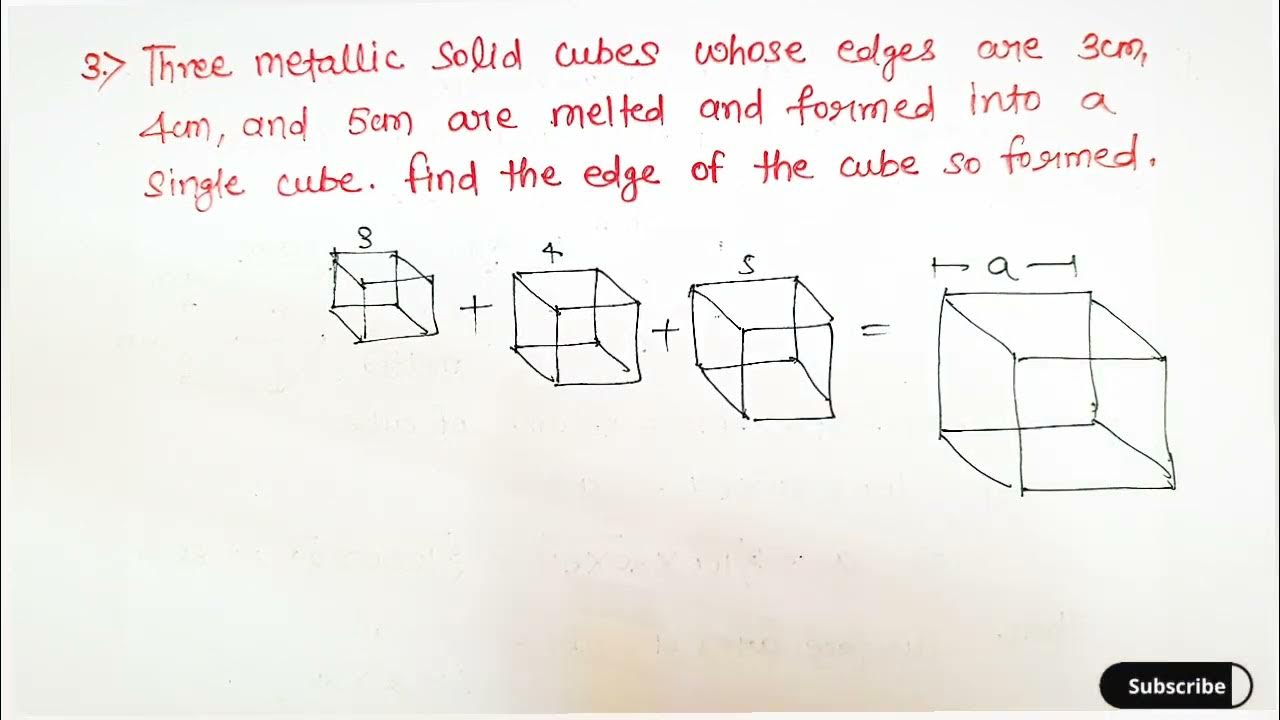 3.> Three metallic solid cubes whose edges are 3cm,
4cm, and 5cm are melted and formed into a
single cube. find the edge of the cube so formed.
3 + 4 + 5 = a
Subscribe